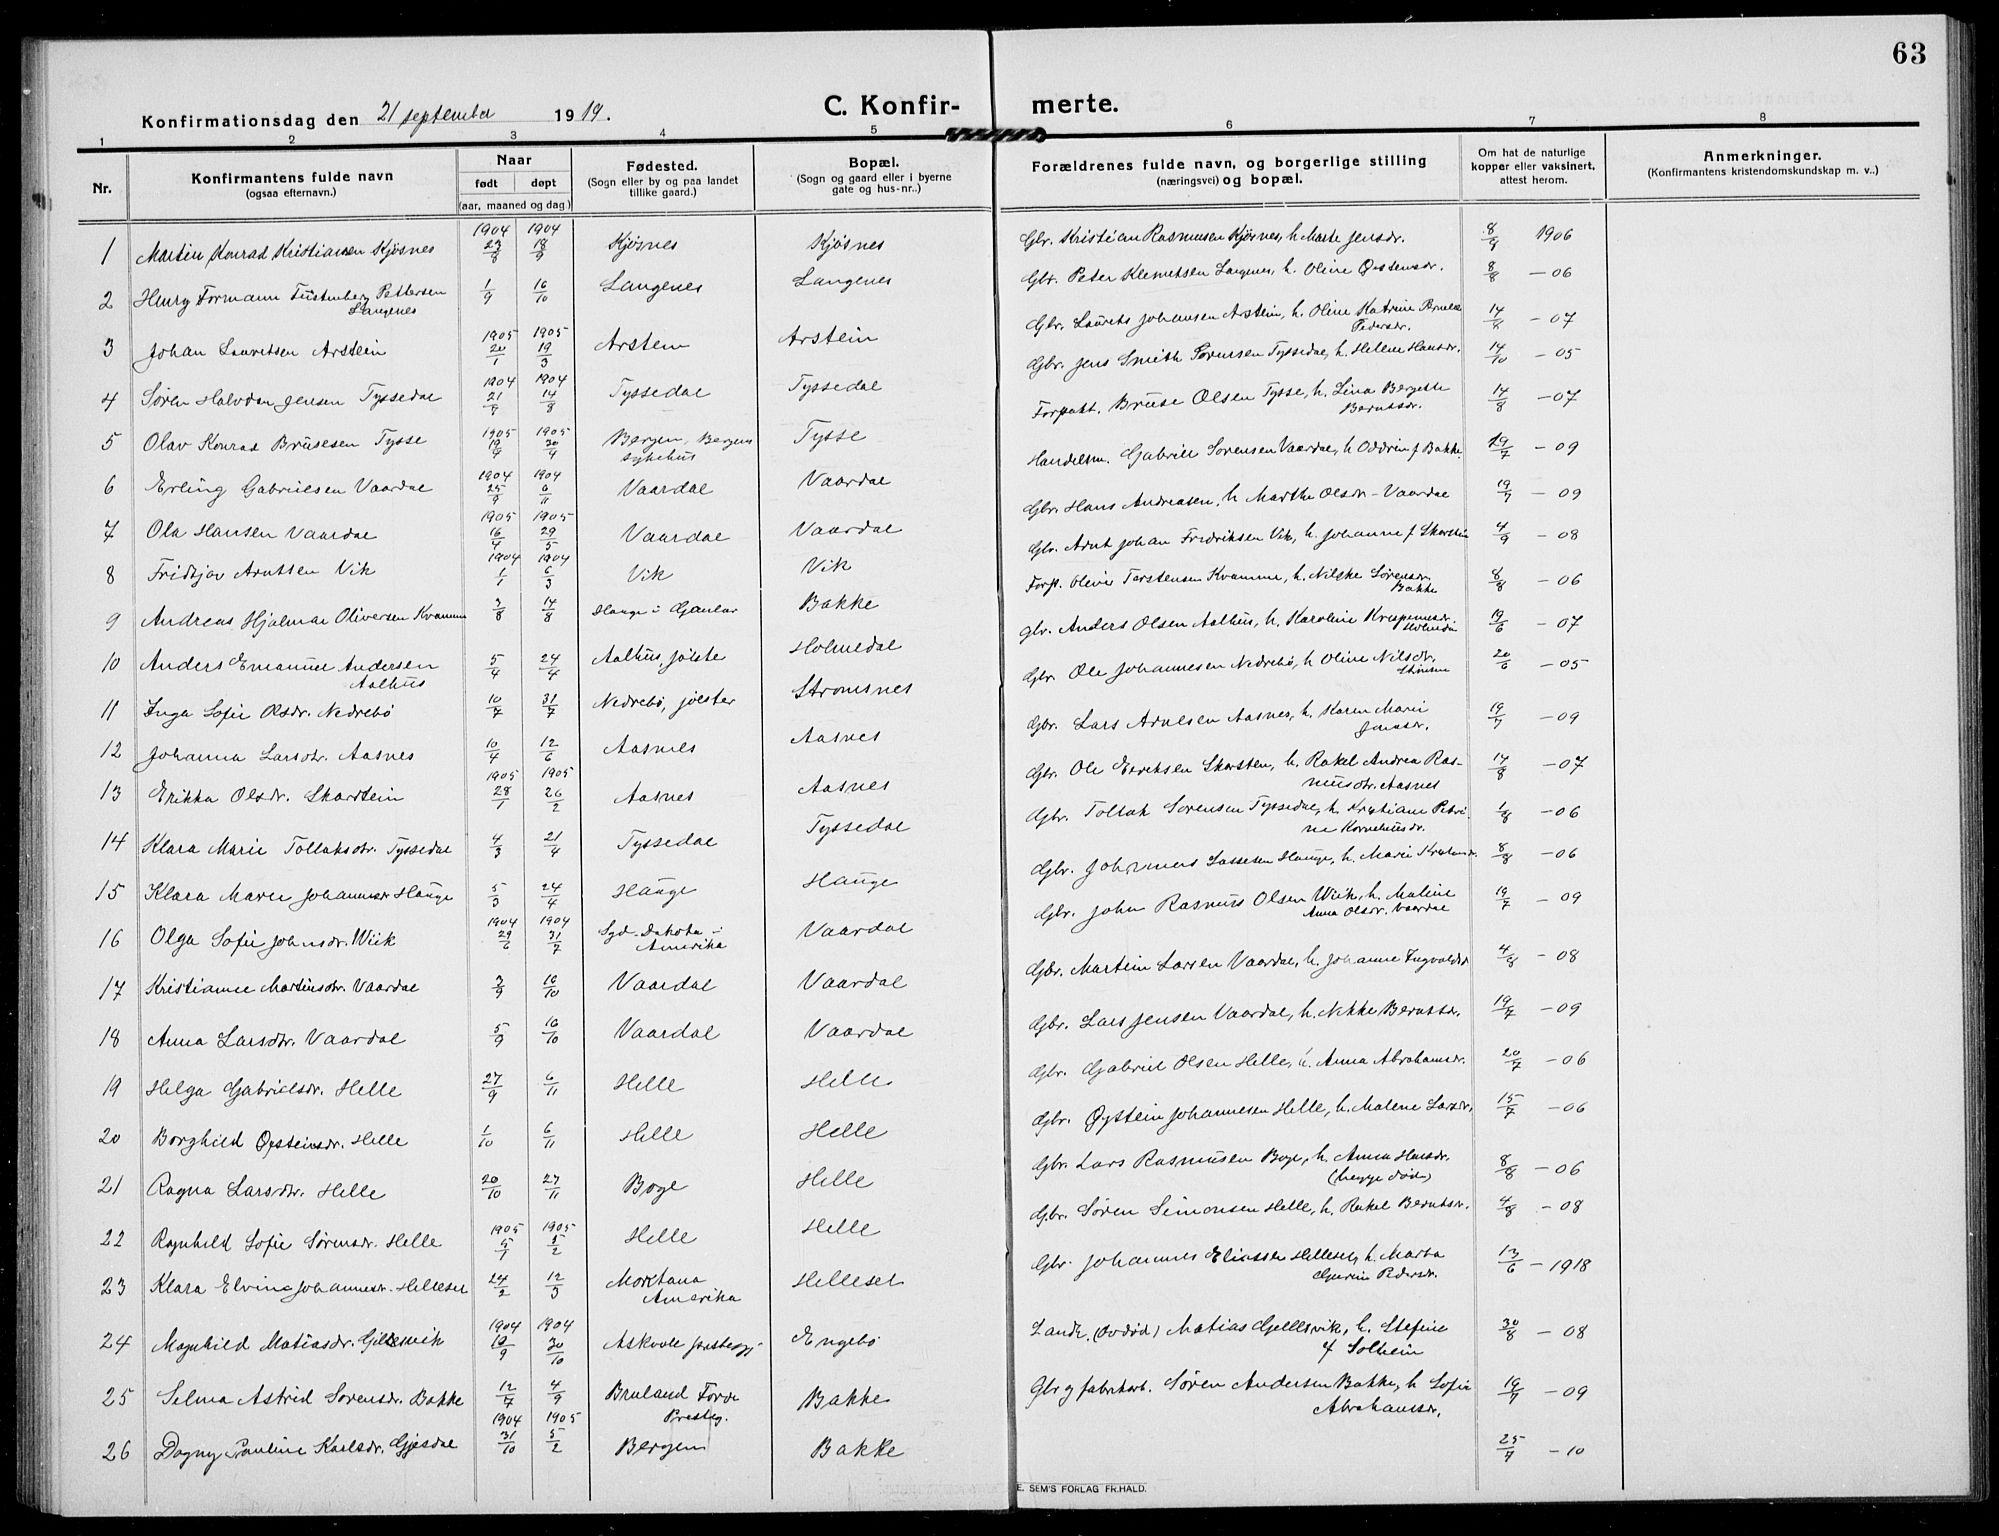 63
Konfirmationsdag den 21 september 1919. C. Konfir- merte.
1 2 3 4 5 6 7 8
Nr. Konfirmantens fulde navn (ogsaa efternavn.) Naar født døpt (aar, maaned og dag) Fødested. (Sogn eller by og paa landet tillike gaard.) Bopæl. (Sogn og gaard eller i byerne gate og hus-nr.) Forældrenes fulde navn, og borgerlige stilling (næringsvei) og bopæl. Om hat de naturlige kopper eller vaksinert, attest herom. Anmerkninger. (Konfirmantens kristendomskundskap m. v.)
1904 1904
1 Martin Konrad Kristiansen Kjøsnes 23/8 18/9 Kjøsnes Kjøsnes Gbr. Kristian Rasmusen Kjøsnes, h. Marte Jensdr. 8/9 1906
2 Henry Formann Pettersen Langenes 1/9 16/10 Langenes Langenes Gbr. Peter Klemetsen Langenes, h. Oline Østensdr. 8/8 - 06
1905 1905
3 Johan Lauritsen Arstein 20/1 19/3 Arstein Arstein Gbr. Laurits Johansen Arstein, h. Oline Katrine Pedersdr. 14/4 - 07
1904 1904
4 Søren Halvdan Jensen Tyssedal 21/7 14/8 Tyssedal Tyssedal Gbr. Jens Smith Sørensen Tyssedal, h. Helene Hansdr. 14/10 - 05
1905 1905
5 Olav Konrad Brusesen Tysse 19/4 30/4 Bergen, Bergens sykehus Tysse Forpakt. Bruse Olsen Tysse, h. Lina Bergitte Berntsdr. 14/8 - 07
1904 1904
6 Erling Gabrielsen Vaardal 25/9 6/11 Vaardal Vaardal Handelsm. Gabriel Sørensen Vaardal, h. Oddrin f Bakke 19/7 - 09
1905 1905
7 Ola Hansen Vaardal 16/4 29/5 Vaardal Vaardal Gbr. Hans Andreasen, h. Marthe Olsdr - Vaardal 19/7 - 09
1904 1904
8 Fridtjov Arntsen Vik 1/1 6/3 Vik Vik Gbr. Arnt Johan Fredriksen Vik, h. Johanne f Skorstein 4/9 - 08
9 Andreas Hjalmar Oliversen Kvamme 3/8 14/8 Hauge i Gaular Bakke Forp. Oliver Torstensen Kvamme, h. Nilske Sørensdr. Bakke 8/8 - 06
10 Anders Emanuel Andersen Aalhus 5/4 24/4 Aalhus, Jølste Holmedal Gbr. Anders Olsen Aalhus, h. Karoline 19/6 - 07
11 Inga Sofie Olsdr. Nedrebø 10/7 31/7 Nedrebø, Jølster Stromsnes Gbr. Ole Johannesen Nedrebø, h. Oline Nilsdr. 20/6 - 05
12 Johanna Larsdtr. Aasnes 10/4 12/6 Aasnes Aasnes Gbr. Lars Arnesen Aasnes, h. Karen Marie Jensdr. 19/7 - 09
1905 1905
13 Erikka Olsdr. Skorstein 28/1 26/2 Aasnes Aasnes Gbr. Ole Eriksen Skorsten, h. Rakel Andrea Rasmusdtr. Aasnes 14/8 - 07
14 Klara Marie Tollaksdtr. Tyssedal 4/3 21/4 Tyssedal Tyssedal Gbr. Tollak Sørensen Tyssedal, h. Kristiane Petrine Korneliusdr. 1/8 - 06
15 Klara Marie Johannesdr Hauge 5/3 24/4 Hauge Hauge Gbr. Johannes Lassesen Hauge, h. Marie 8/8 - 06
1904 1904
16 Olga Sofie Johnsdr. Wiik 29/6 31/7 Syd-Dakota i Amerika Vaardal Gbr. John Rasmus Olsen Wiik, h. Maline Anna Olsdr. Vaardal 19/7 - 09
17 Kristianne Martinsdtr. Vaardal 3/9 16/10 Vaardal Vaardal Gbr. Martin Larsen Vaardal, h. Johanne Ingvaldsdr 4/8 - 08
18 Anna Larsdtr. Vaardal 5/9 16/10 Vaardal Vaardal Gbr. Lars Jensen Vaardal, h. Nikke Berntsdr. 19/7 - 09
19 Helga Gabrielsdr. Helle 27/9 6/11 Helle Helle Gbr. Gabriel Olsen Helle, h. Anna Abrahamsdr. 20/7 - 06
20 Borghild Øysteinsdr. Helle 1/10 6/11 Helle Helle Gbr. Øystein Johannesen Helle, h. Malene Larsdr. 15/7 - 06
21 Ragna Larsdtr. Helle 20/10 27/11 Boge Helle Gbr. Lars Rasmusen Boge, h. Anna Hansdr. (begge døde) 8/8 - 06
1905 1905
22 Ragnhild Sofie Sørensdr. Helle 5/1 5/2 Helle Helle Gbr. Søren Simonsen Helle, h. Rakel Berntsdr. 4/8 - 08
23 Klara Elvine Johannesdr. Helleset 24/2 12/3 Montana Amerika Helleset Gbr. Johannes Eliassen Helleset, h. Marta Gurine Pedersdr. 13/6 - 1918
1904 1904
24 Magnhild Matiasdr. Gjellesvik 10/9 30/10 Askvoll prestegj. Engebø Landh. (Avdød) Matias Gjellesvik, h. Stefine f Solheim 30/8 - 08
25 Selma Astrid Sørensdr. Bakke 12/7 4/9 Bruland Førde Presteg. Bakke Gbr og fabrikarb. Søren Andersen Bakke, h Sofie Abrahamsdr. 19/7 - 09
1904 1905
26 Dagny Pauline Karlsdr. Gjesdal 31/10 5/2 Bergen Bakke 25/7 - 10
E. SEM'S FORLAG FR.HALD.